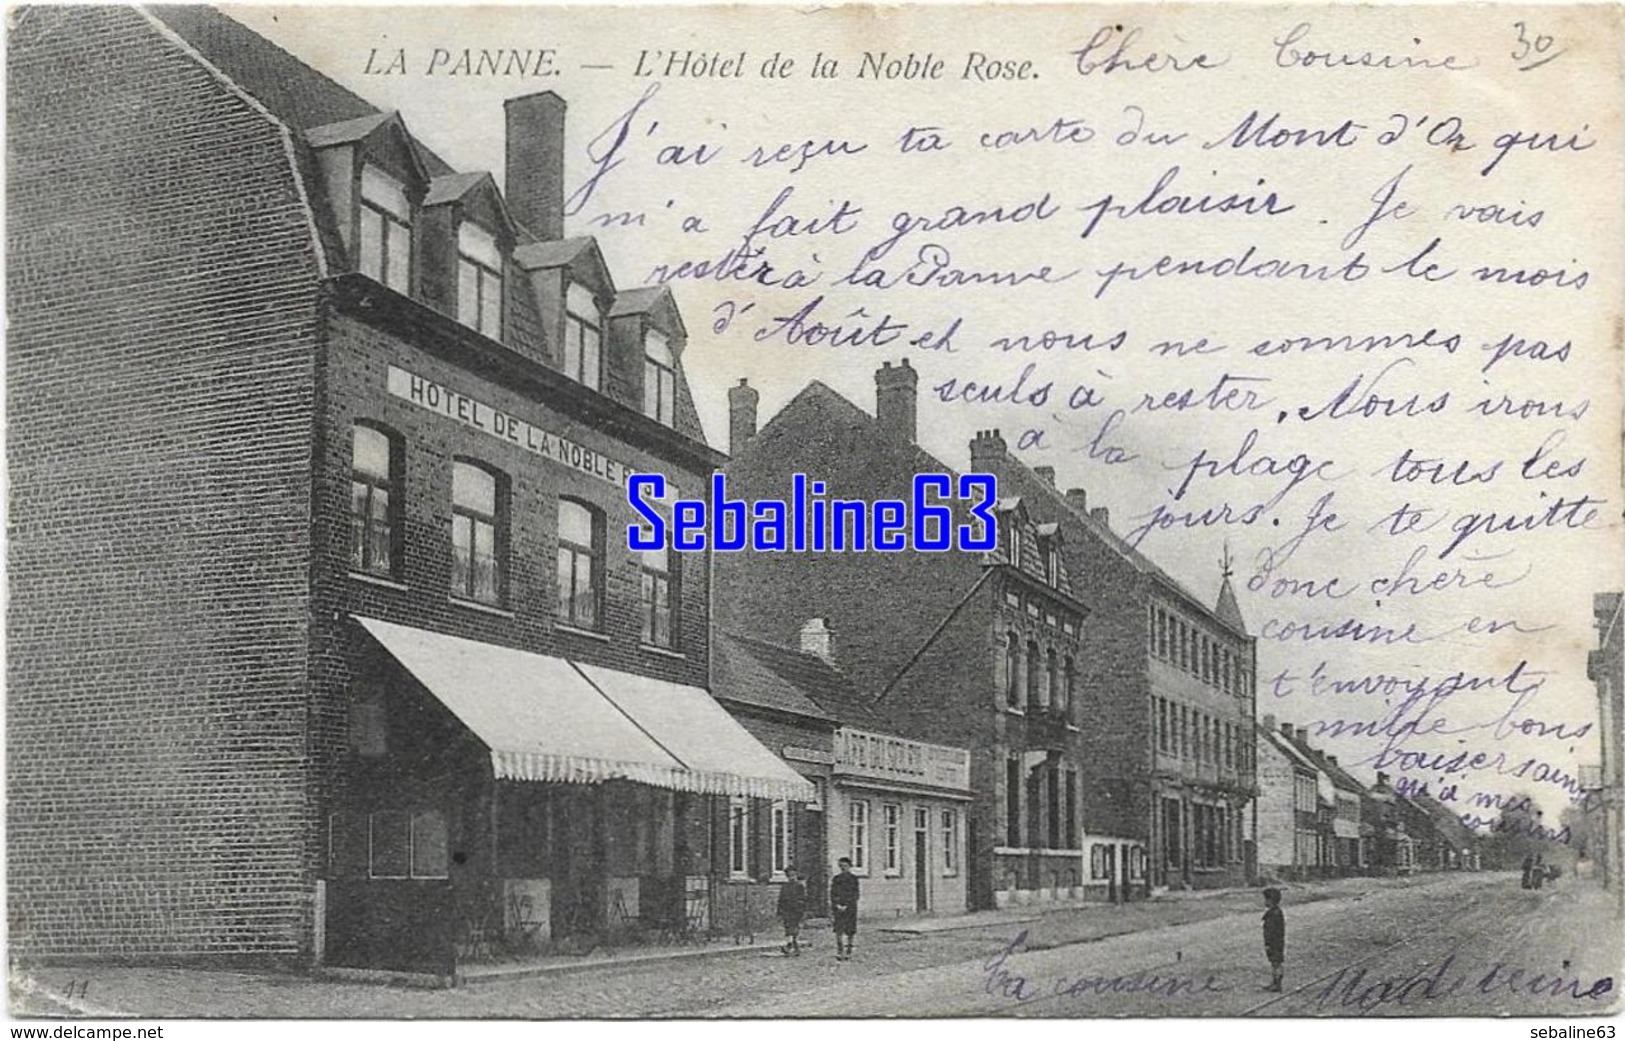 LA PANNE. — L'Hôtel de la Noble Rose.
Chère Cousine 30
J'ai reçu ta carte du Mont d'Or qui
m'a fait grand plaisir. Je vais
rester à la Panne pendant le mois
d'Août et nous ne sommes pas
seuls à rester. Nous irons
à la plage tous les
jours. Je te quitte
donc chère
cousine en
t'envoyant
mille bons
baisers ainsi
qu'à mes
cousins
Ta cousine Madeleine
HÔTEL DE LA NOBLE
Sebaline63
CAFÉ DU SOLEIL
11
https://www.delcampe.net
sebaline63